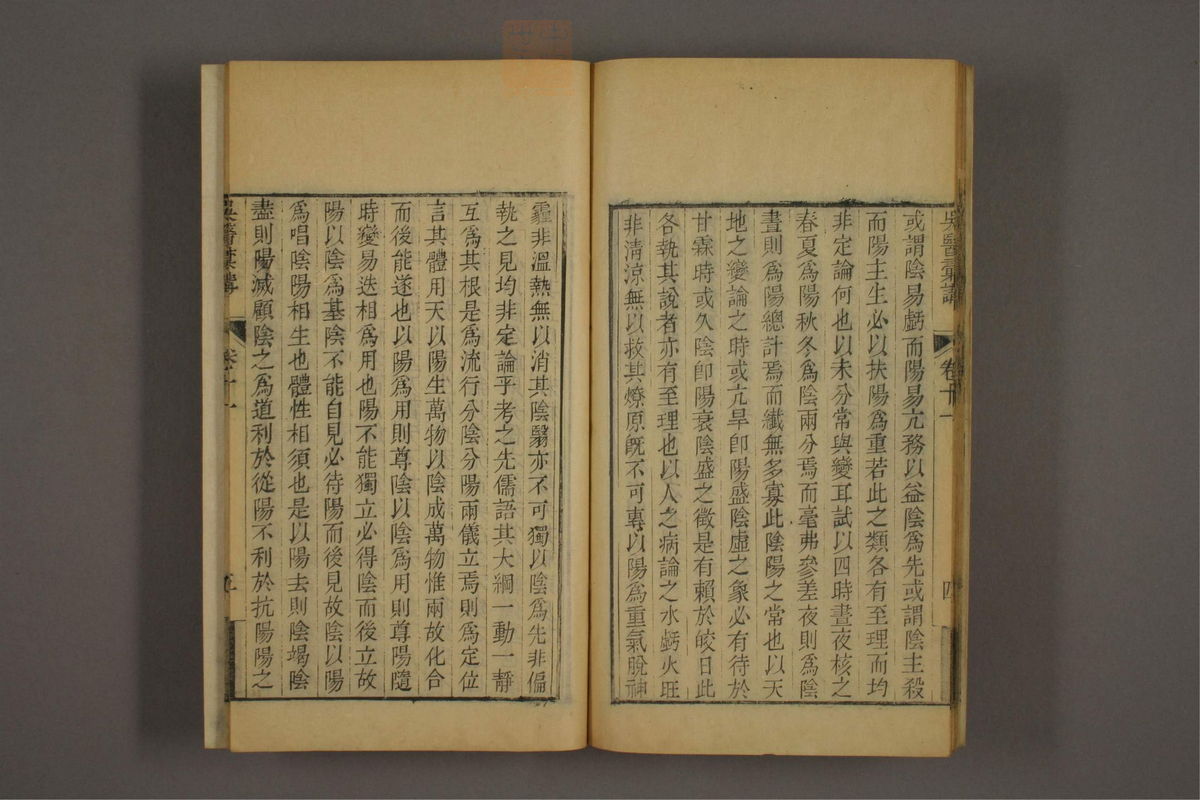 吳醫彙講 卷十一 四
或謂陰易虧而陽易亢務以益陰爲先或謂陰主殺
而陽主生必以扶陽爲重若此之類各有至理而均
非定論何也以未分常與變耳試以四時晝夜核之
春夏爲陽秋冬爲陰兩分焉而毫弗參差夜則爲陰
晝則爲陽總計焉而纖無多寡此陰陽之常也以天
地之變論之時或亢旱卽陽盛陰虛之象必有待於
甘霖時或久陰卽陽衰陰盛之徵是有賴於皎日此
各執其說者亦有至理也以人之病論之水虧火旺
非淸涼無以救其燎原旣不可專以陽爲重氣脫神
霾非溫熱無以消其陰翳亦不可獨以陰爲先非偏
執之見均非定論乎考之先儒語其大綱一動一靜
互爲其根是爲流行分陰分陽兩儀立焉則爲定位
言其體用天以陽生萬物以陰成萬物惟兩故化合
而後能遂也以陽爲用則尊陰以陰爲用則尊陽隨
時變易迭相爲用也陽不能獨立必得陰而後立故
陽以陰爲基陰不能自見必待陽而後見故陰以陽
爲唱陰陽相生也體性相須也是以陽去則陰竭陰
盡則陽滅顧陰之爲道利於從陽不利於抗陽陽之
吳醫彙講 卷十一 五